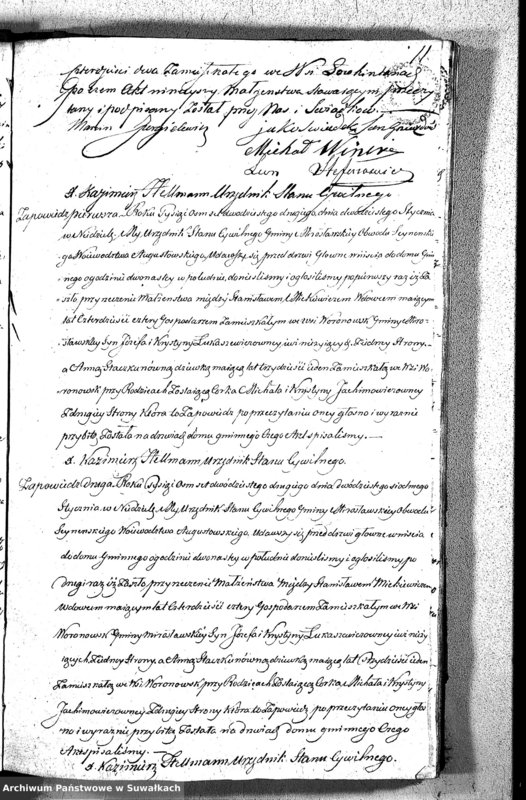 11
czterdzieści dwa Zamieszkałego we Wsi
poczem Akt niniejszy Małżeństwa stawaiącym przeczy-
tany i podpisany Został przez Nas i Świadków.
Marcin Jurgielewicz jako Świadek Jan
Michał
Lewn Stefanowicz
d. Kazimierz Hellmann Urzędnik Stanu Cywilnego
Zapowiedz pierwsza. Roku Tysiąc Osmset dwudziestego drugiego, dnia dwudziestego Stycznia
w Niedzielę. My Urzędnik Stanu Cywilnego Gminy Mirosławskiey Obwodu Seynenskie-
go Woiewództwa Augustowskiego, Udawszy się przed drzwi Głowne wniscia do domu Gmin-
nego o godzinie dwonastey w południe, doniesliśmy i ogłosiliśmy po pierwszy raz iż Za-
szło przyrzeczenie Małżeństwa między Stanisławem Mickiewiczem Wdowcem maiącym
lat Czterdzieści cztery Gospodarzem Zamieszkałym we wsi Woronowsk Gminy Miro-
sławskiey Syn Józefa i Krystyny Łukaszewiczowney iuż nieżyiących, z Jedney Strony.
a Anną Staczkunówną dziewką maiącą lat trzydzieści ieden Zamieszkałą we Wsi Wo-
ronowsk przy Rodzicach Zostaiącą Corką Michała i Krystyny Jachimowiczowney
z drugiey Strony Ktora to Zapowiedz po przeczytaniu oney głosno i wyraznie
przybitą Została na drzwiach domu gminnego Czego Akt spisaliśmy.
d. Kazimierz Hellmann Urzędnik Stanu Cywilnego.
Zapowiedz druga. Roku Tysiąc Osmset dwudziestego drugiego dnia dwudziestego siodmego
Stycznia w Niedzielę My Urzędnik Stanu Cywilnego Gminy Mirosławskiey Obwodu
Seynenskiego Woiewodztwa Augustowskiego, Udawszy się przed drzwi głowne wniscia
do domu Gminnego o godzinie dwonastey w południe doniesliśmy i ogłosiliśmy po
drugi raz iż Zaszło przyrzeczenie Małżeństwa między Stanisławem Mickiewiczem
Wdowcem maiącym lat Czterdzieści cztery Gospodarzem Zamieszkałym we Wsi
Woronowsk Gminy Mirosławskiey Syn Józefa i Krystyny Łukaszewiczowney iuż nieży-
iących z Jedney Strony, a Anną Staczkunówną dziewką maiącą lat trzydzieści ieden
Zamieszkałą we Wsi Woronowsk przy Rodzicach Zostaiącą Corką Michała i Krystyny
Jachimowiczowney z drugiey Strony Ktora to Zapowiedz po przeczytaniu oney gło-
sno i wyraznie przybitą Została na drzwiach domu gminnego Czego
Akt spisaliśmy.
d. Kazimierz Hellmann Urzędnik Stanu Cywilnego.
Archiwum Państwowe w Suwałkach